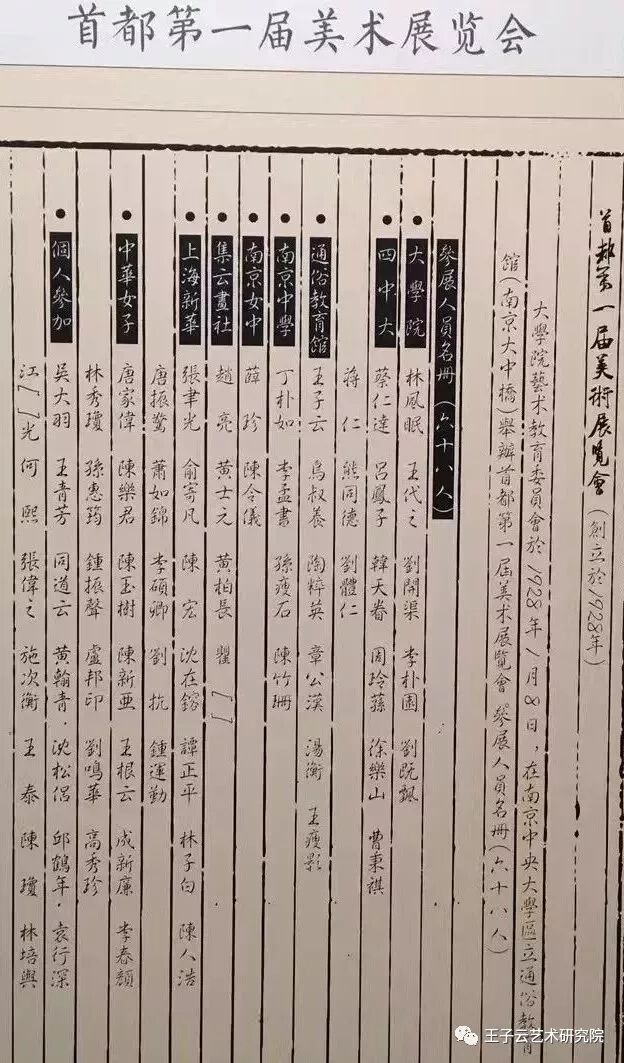 首都第一届美术展览会
首都第一届美術展覽會(創立於1928年)
大學院藝术教育委員會於1928年1月8日,在南京中央大學區立通俗教育
館(南京大中橋)舉辦首都第一届美术展覽會。參展人員名冊(六十八人)
參展人員名冊(六十八人)
•大學院 林风眠 王代之 劉開渠 李朴園 劉既漂
•四中大 蔡仁達 呂鳳子 韓天眷 周玲蓀 徐樂山 曹秉祺
蔣仁 熊同德 劉體仁
•通俗教育館 王子云 烏叔養 陶粹英 章公漠 湯衡 王瘦影
•南京中學 丁朴如 李孟書 孫瘦石 陳竹珊
•南京女中 薛珍 陳令儀
•集云畫社 趙亮 黄士元 黄柏長 瞿[ ]
•上海新華 張聿光 俞寄凡 陳宏 沈在鎔 譚正平 林子白 陳人浩
唐振驚 蕭如錦 李碩卿 劉抗 鍾運勤
•中華女子 唐家偉 陳樂君 陳玉樹 陳新亜 王根云 成新廉 李春顏
林秀瓊 孫惠筠 鍾振聲 盧邦印 劉鳴華 高秀珍
•個人參加 吴大羽 王青芳 同道云 黄翰青, 沈松侣 邱鶴年, 袁行深
江[ ]光 何熙 張偉之 施次衡 王泰 陳瓊 林培與
王子云艺术研究院